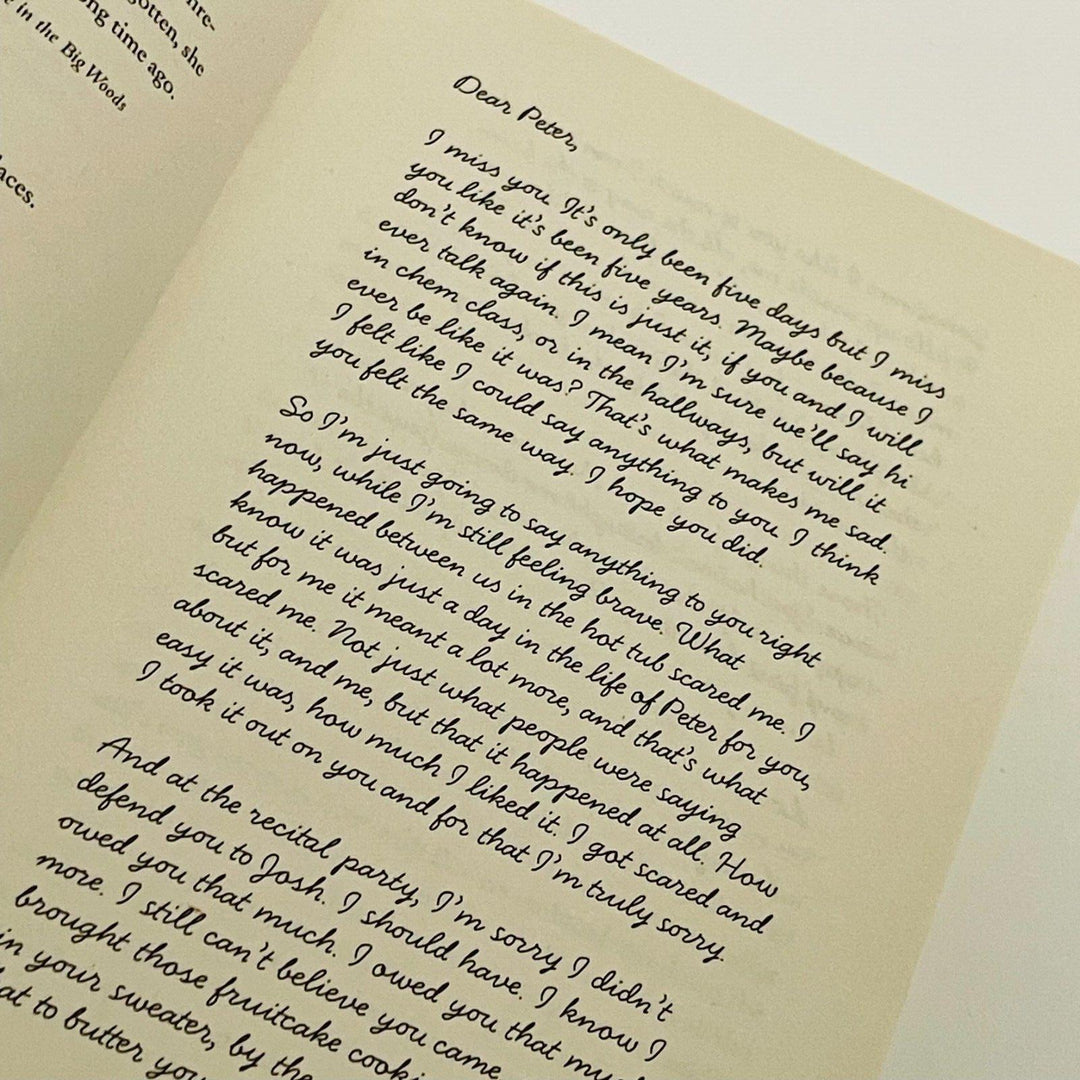 gotten, she
ong time ago.
e in the Big Woods
aces.
Dear Peter,
I miss you. It's only been five days but I miss
you like it's been five years. Maybe because I
don't know if this is just it, if you and I will
ever talk again. I mean I'm sure we'll say hi
in chem class, or in the hallways, but will it
ever be like it was? That's what makes me sad.
I felt like I could say anything to you. I think
you felt the same way. I hope you did.
So I'm just going to say anything to you right
now, while I'm still feeling brave. What
happened between us in the hot tub scared me. I
know it was just a day in the life of Peter for you,
but for me it meant a lot more, and that's what
scared me. Not just what people were saying
about it, and me, but that it happened at all. How
easy it was, how much I liked it. I got scared and
I took it out on you and for that I'm truly sorry.
And at the recital party, I'm sorry I didn't
defend you to Josh. I should have. I know I
owed you that much. I owed you that much
more. I still can't believe you came
brought those fruitcake cooki
in your sweater, by the
at to butter you